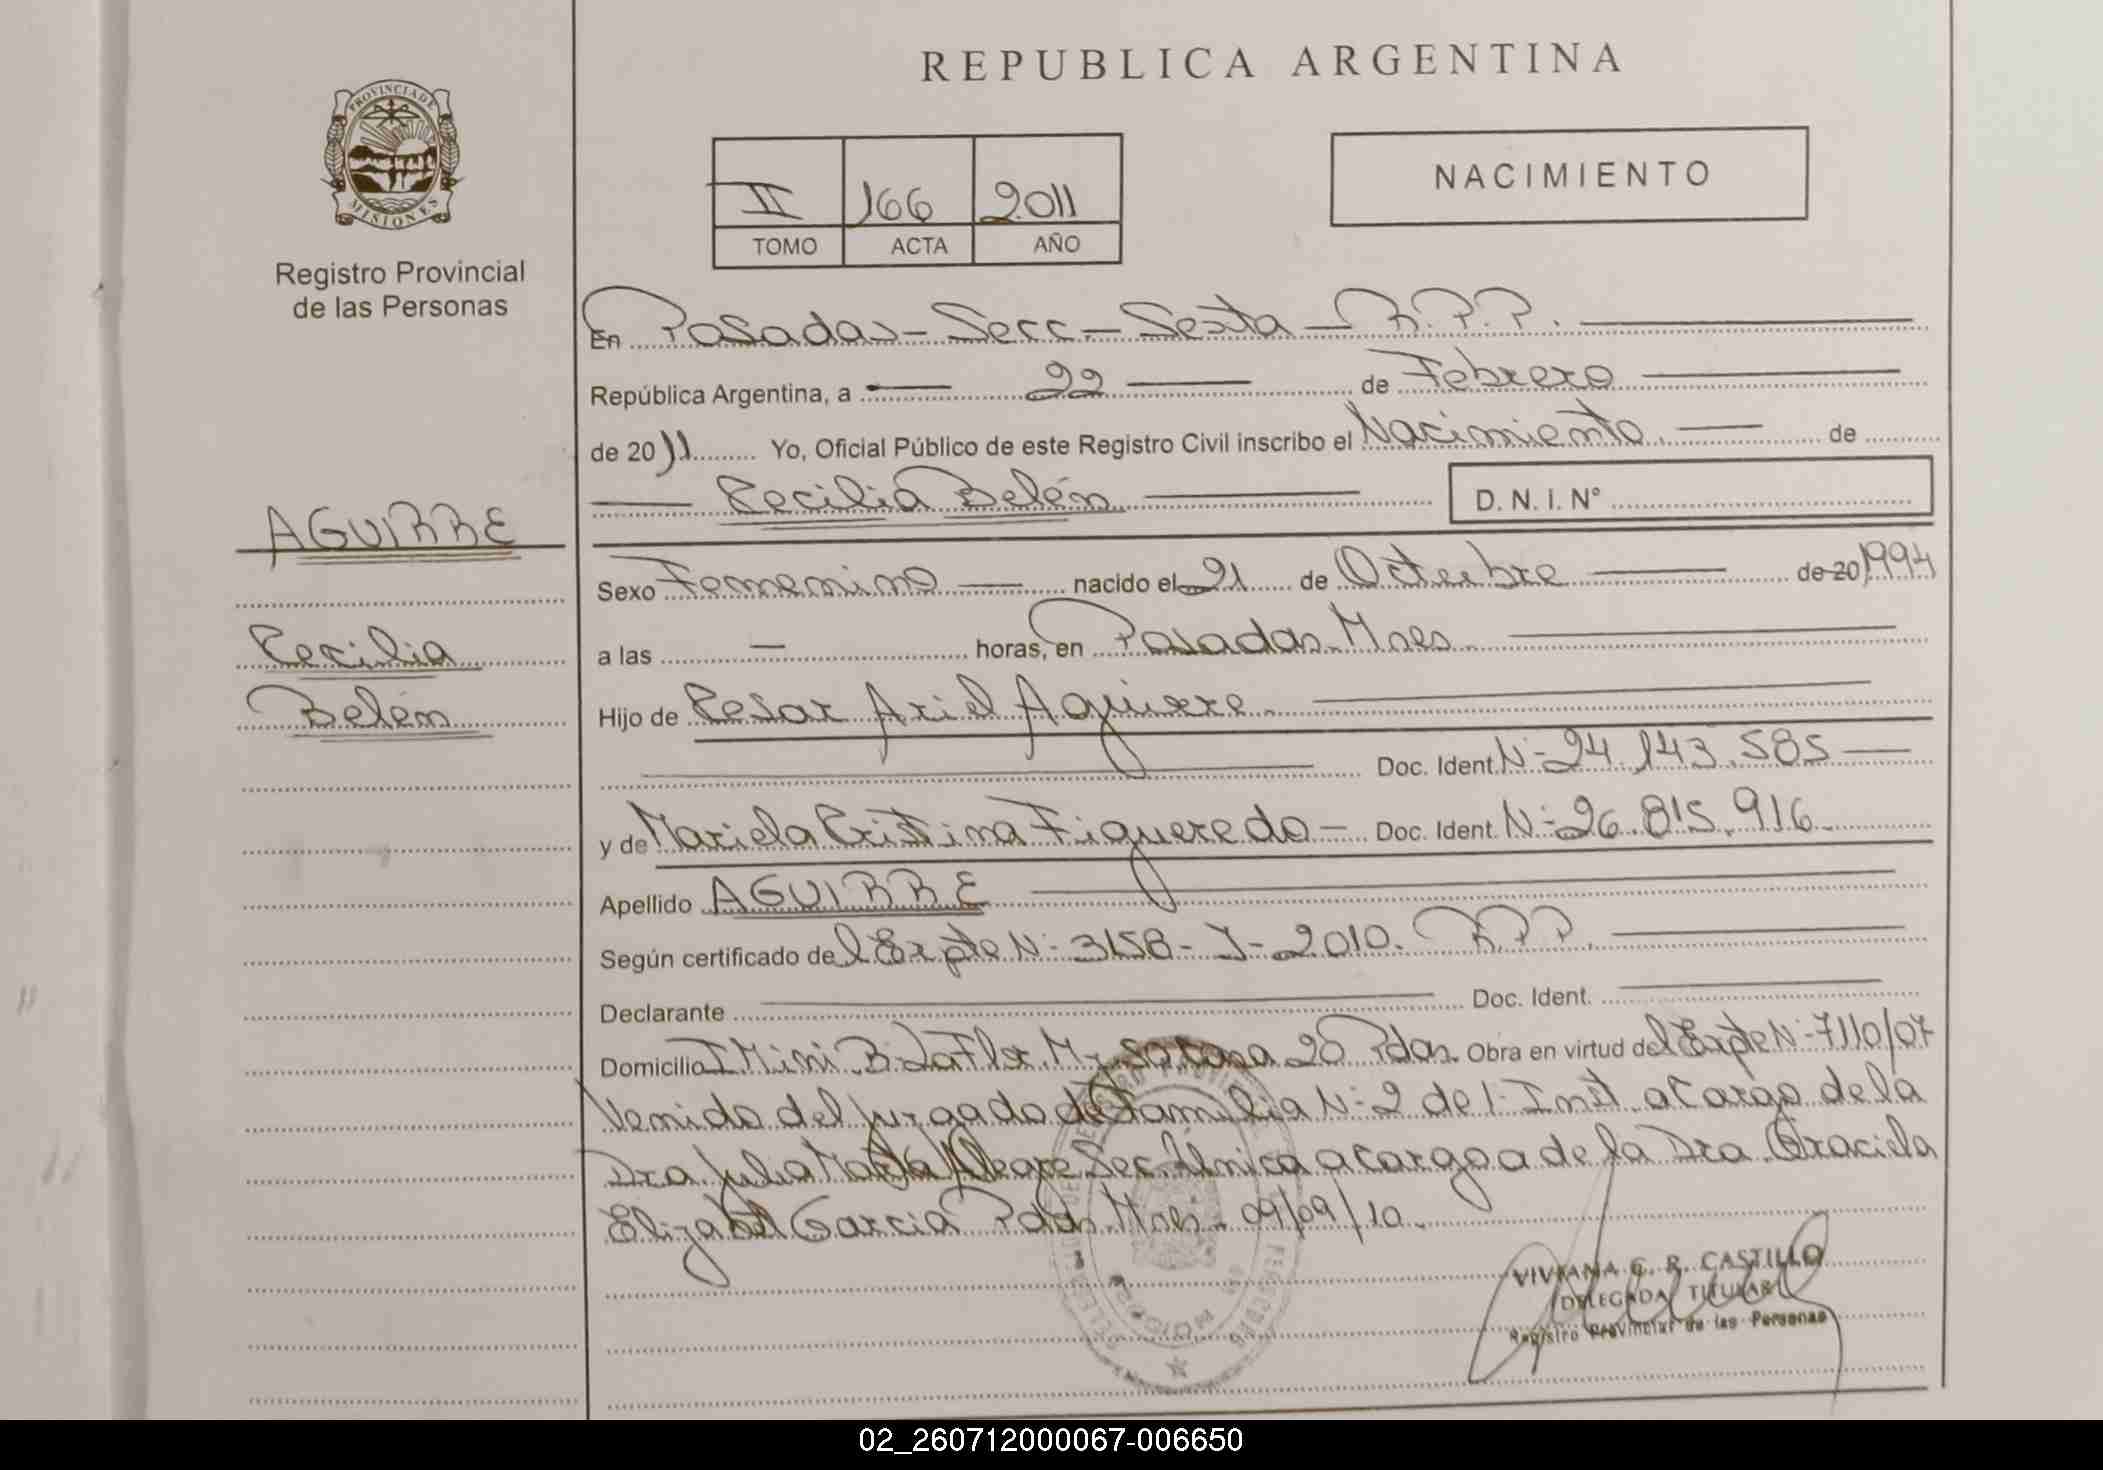 REPUBLICA ARGENTINA
PROVINCIA DE
MISIONES
Registro Provincial
de las Personas
II 166 2011
TOMO ACTA AÑO
NACIMIENTO
En Posadas - Secc - Sexta - R.P.P.
República Argentina, a 22 de Febrero
de 2011 Yo, Oficial Público de este Registro Civil inscribo el Nacimiento de
Cecilia Belén D. N. I. N°
AGUIRRE
Cecilia
Belén
Sexo Femenino nacido el 21 de Octubre de 20 1994
a las — horas, en Posadas Mnes.
Hijo de Cesar Ariel Aguirre
Doc. Ident. N- 24.143.585
y de Mariela Cristina Figueredo - Doc. Ident. N- 26.815.916
Apellido AGUIRRE
Según certificado del Expte N- 3158 - J - 2010. R.P.P.
Declarante Doc. Ident.
Domicilio Mini B. La Flor M- casa 20 Pdas. Obra en virtud del Expte N- 7110/07
Venido del Juzgado de Familia N-2 de 1- Inst. a Cargo de la
Dra. Julia Alegre Sec. Unica a cargo a de la Dra. Graciela
Elizabet Garcia Pdas. Mnes. 09/09/10.
VIVIANA G. R. CASTILLO
DELEGADA TITULAR
Registro Provincial de las Personas
02_260712000067-006650